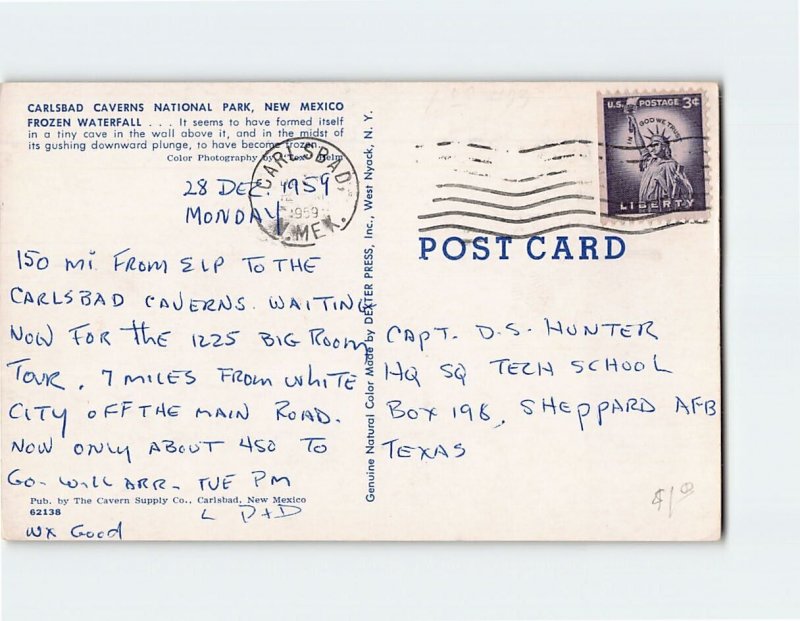 CARLSBAD CAVERNS NATIONAL PARK, NEW MEXICO
FROZEN WATERFALL . . . It seems to have formed itself
in a tiny cave in the wall above it, and in the midst of
its gushing downward plunge, to have become frozen.
Color Photography by "Tex" Helm
28 DEC. 1959
MONDAY
150 MI. FROM ELP TO THE
CARLSBAD CAVERNS. WAITING
NOW FOR THE 1225 BIG ROOM
TOUR. 7 MILES FROM WHITE
CITY OFF THE MAIN ROAD.
NOW ONLY ABOUT 450 TO
GO. WILL ARR. TUE PM
L D+D
WX Good
Pub. by The Cavern Supply Co., Carlsbad, New Mexico
62138
Genuine Natural Color Made by DEXTER PRESS, Inc., West Nyack, N. Y.
CARLSBAD,
1959
N. MEX.
U.S. POSTAGE 3¢
IN GOD WE TRUST
LIBERTY
POST CARD
CAPT. D.S. HUNTER
HQ SQ TECH SCHOOL
BOX 198, SHEPPARD AFB
TEXAS